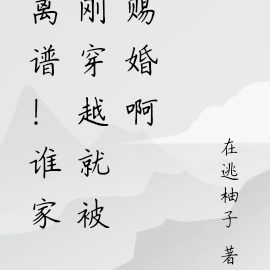 离谱！谁家
刚穿越就被
赐婚啊
在逃柚子 著